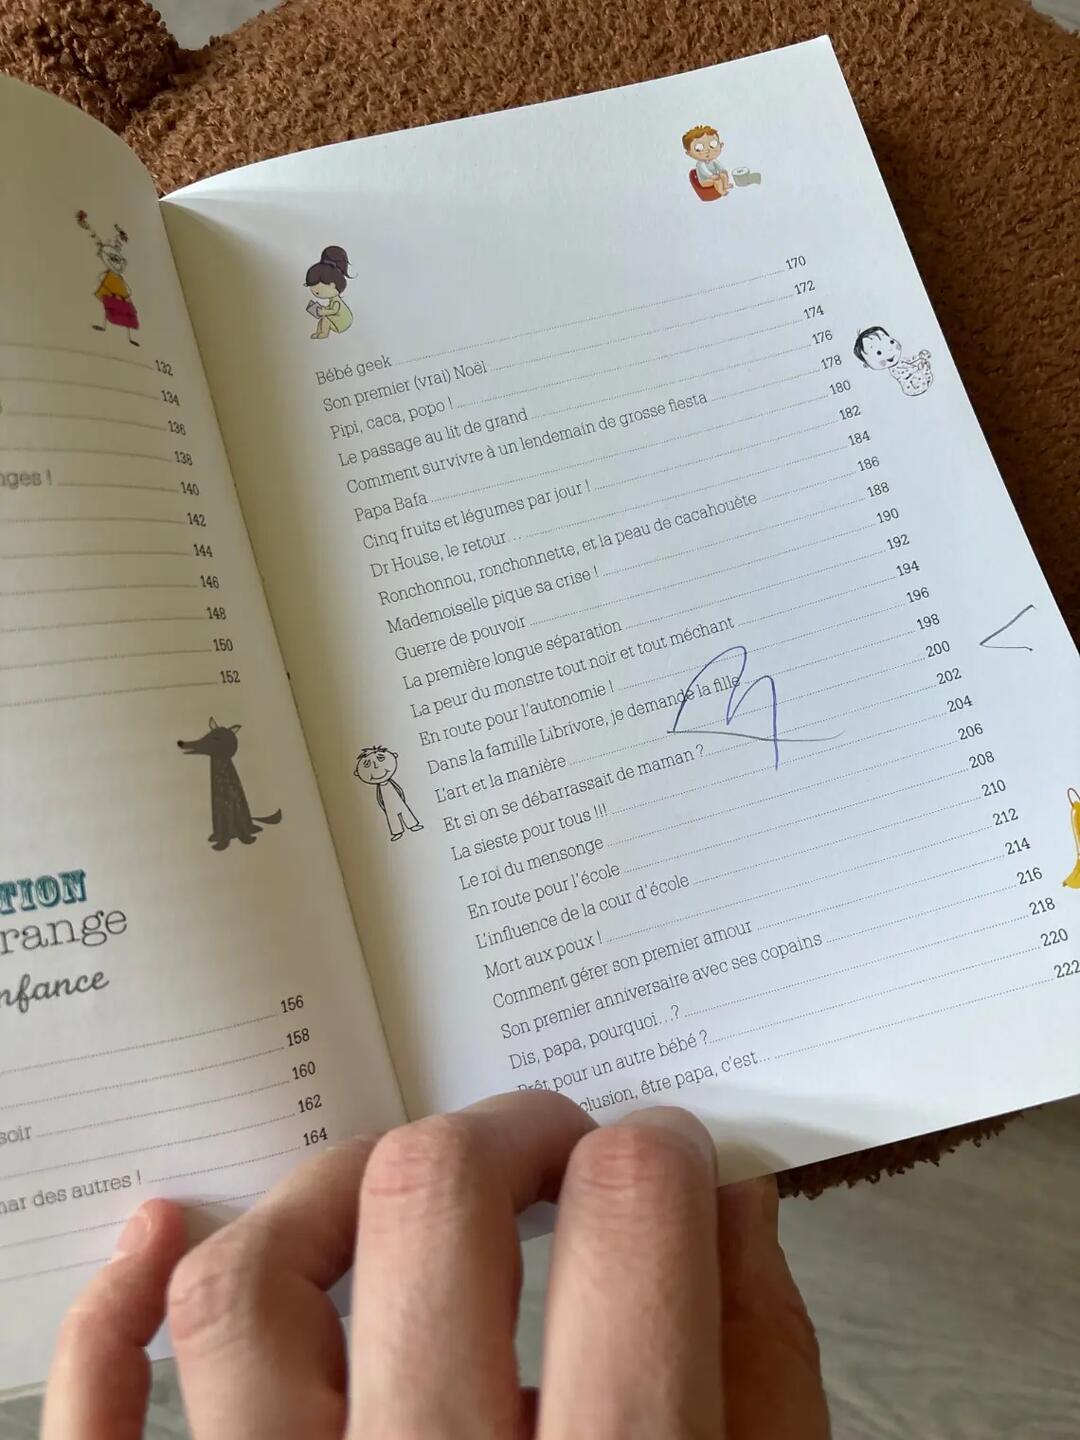 132
134
136
138
nges ! 140
142
144
146
148
150
152
TION
range
nfance
156
158
160
soir 162
des autres ! 164
Bébé geek 170
Son premier (vrai) Noël 172
Pipi, caca, popo ! 174
Le passage au lit de grand 176
Comment survivre à un lendemain de grosse fiesta 178
Papa Bafa 180
Cinq fruits et légumes par jour ! 182
Dr House, le retour... 184
Ronchonnou, ronchonnette, et la peau de cacahouète 186
Mademoiselle pique sa crise ! 188
Guerre de pouvoir 190
La première longue séparation 192
La peur du monstre tout noir et tout méchant 194
En route pour l'autonomie ! 196
Dans la famille Librivore, je demande la fille 198
L'art et la manière 200
Et si on se débarrassait de maman ? 202
La sieste pour tous !!! 204
Le roi du mensonge 206
En route pour l'école 208
L'influence de la cour d'école 210
Mort aux poux ! 212
Comment gérer son premier amour 214
Son premier anniversaire avec ses copains 216
Dis, papa, pourquoi...? 218
Prêt pour un autre bébé ? 220
clusion, être papa, c'est... 222